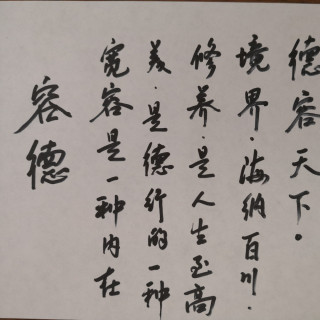 容德
宽容是一种内在
美.是德行的一种
修养.是人生至高
境界.海纳百川.
德容天下。